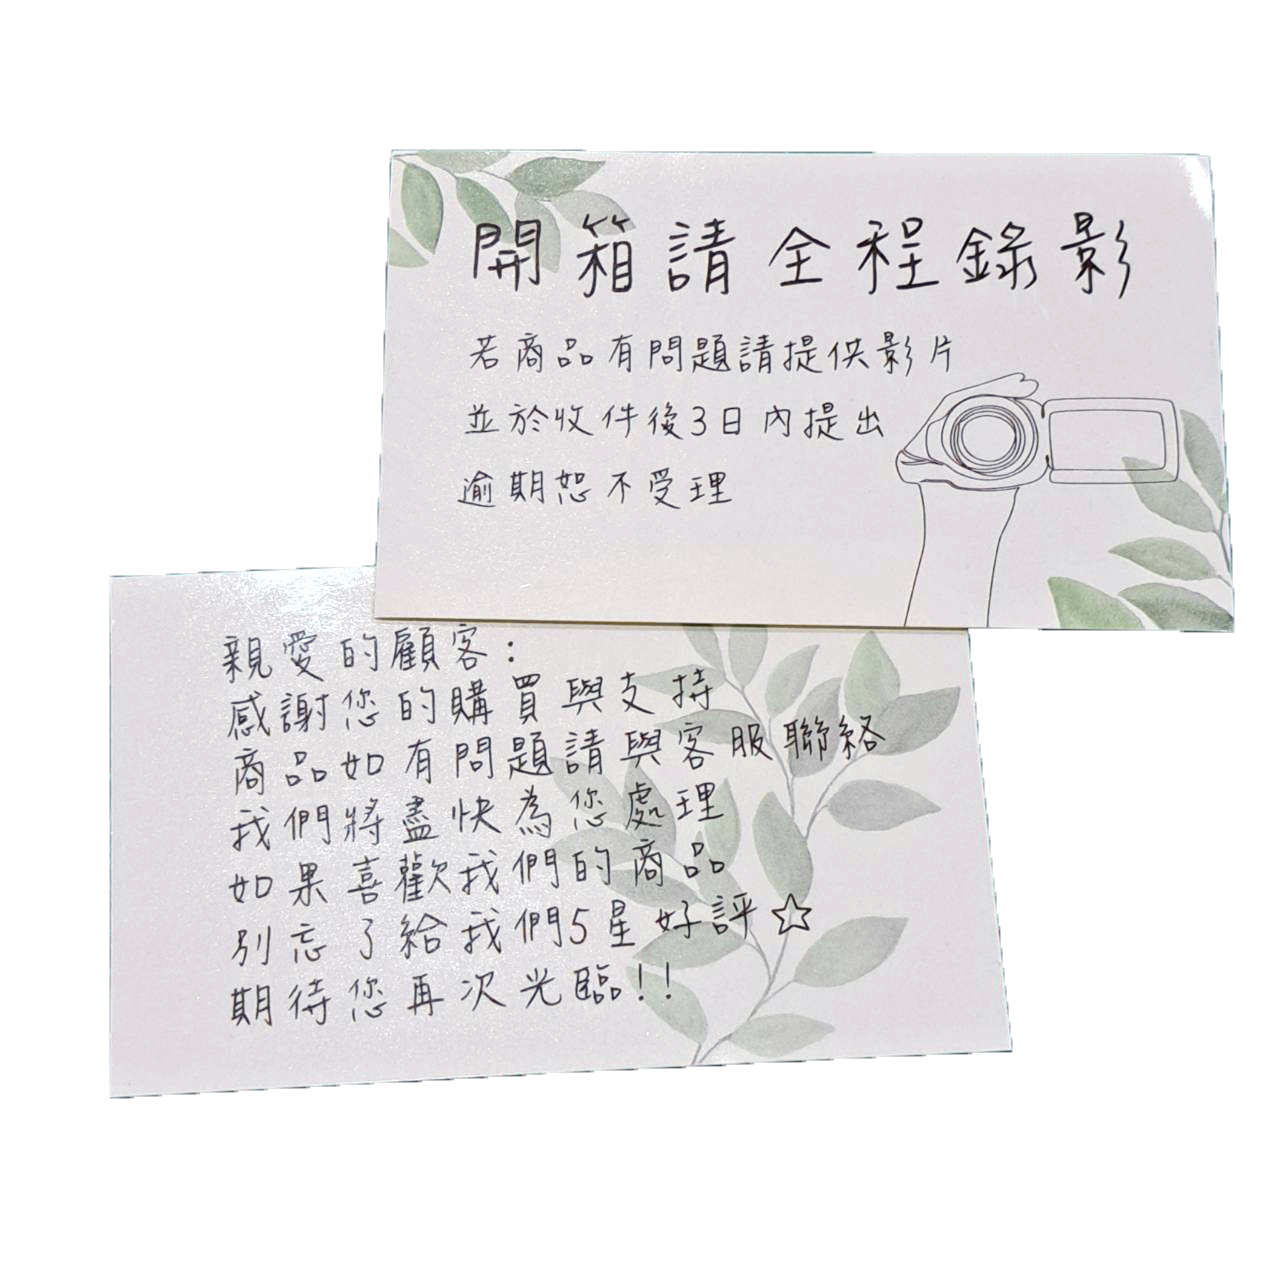 開箱請全程錄影
若商品有問題請提供影片
並於收件後3日內提出
逾期恕不受理
親愛的顧客：
感謝您的購買與支持
商品如有問題請與客服聯絡
我們將盡快為您處理
如果喜歡我們的商品
別忘了給我們5星好評☆
期待您再次光臨!!